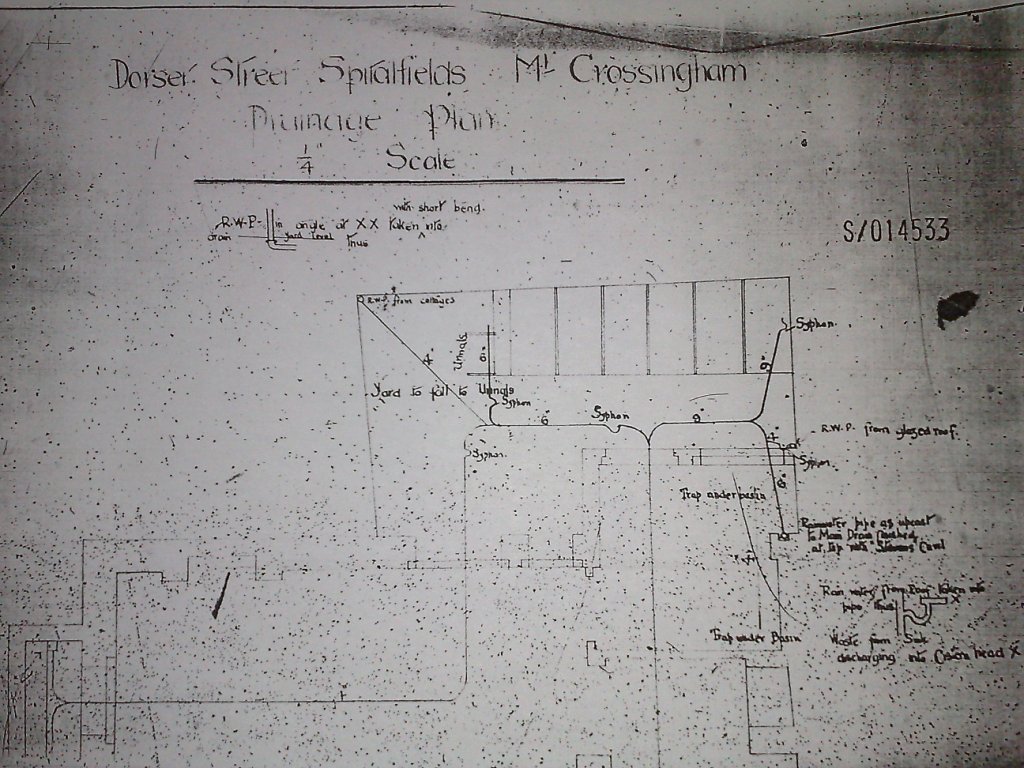 Dorset Street Spitalfields Mr Crossingham
Drainage Plan
1/4" Scale
with short bend.
R.W.P. in angle at X X taken into
drain yard level thus
S/014533
R.W.P. from cottages
Syphon.
Urinals
6"
4"
9"
Yard to fall to Urinals
Syphon
6"
Syphon
9"
4"
R.W.P. from glazed roof.
Syphon.
Syphon.
6"
Trap under basin
Rainwater pipe as upcast
to Main Drain finished
at top with Cowl
4"
Rain water from Roof taken into
pipe thus
X
Trap under Basin
Waste from Sink
discharging into Cistern head X